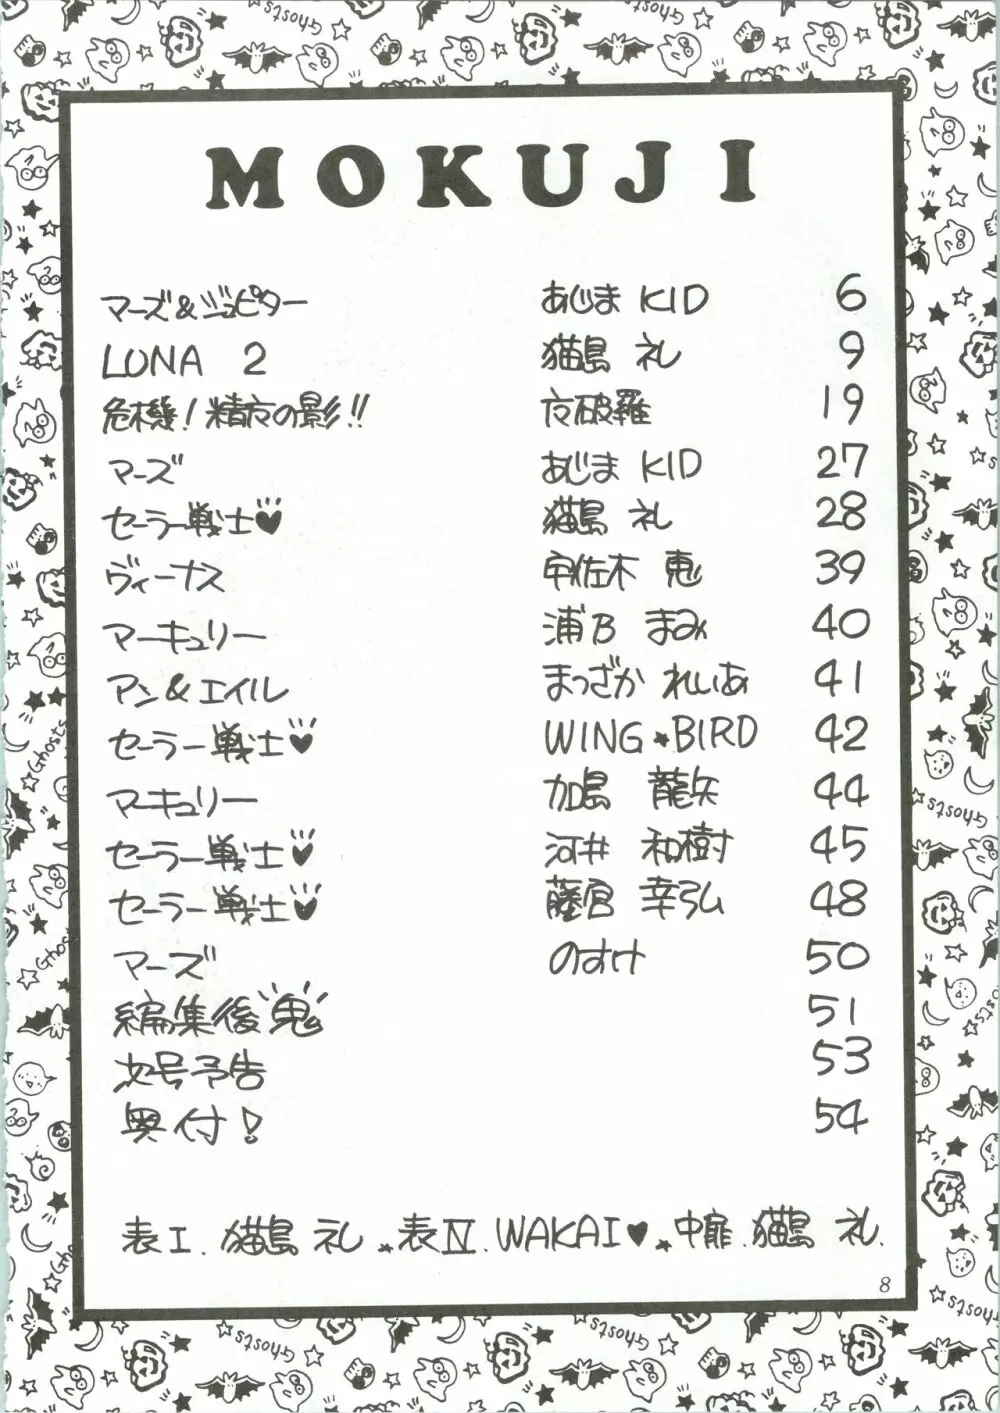 MOKUJI
マーズ&ジュピター あじま KID 6
LUNA 2 猫島 礼 9
危機!精友の影!! 夜破羅 19
マーズ あじま KID 27
セーラー戦士♥ 猫島 礼 28
ヴィーナス 宇佐木 恵 39
マーキュリー 浦乃 まみ 40
アン&エイル まつざか れいあ 41
セーラー戦士♥ WING★BIRD 42
マーキュリー 加島 龍矢 44
セーラー戦士♥ 河井 和樹 45
セーラー戦士♥ 藤宮 幸弘 48
マーズ のすけ 50
編集後鬼 51
次号予告 53
奥付! 54
表I. 猫島 礼 ★表IV. WAKAI♥ ★中扉. 猫島 礼.
8
Ghosts
Ghosts
Ghosts
Ghosts
Ghosts
Ghosts